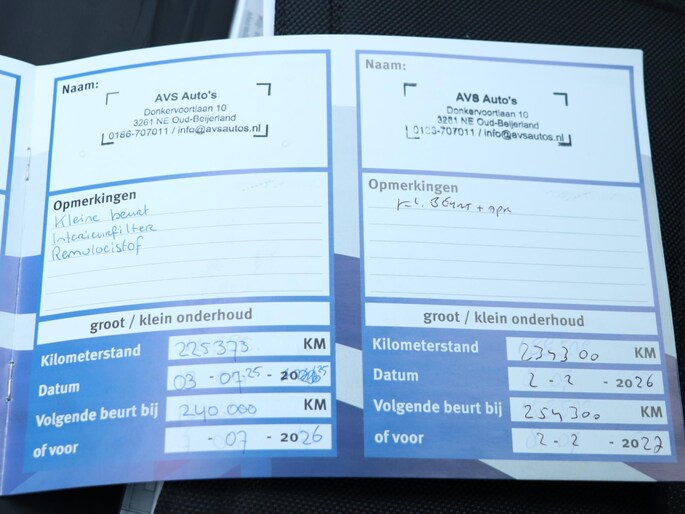 Naam:
AVS Auto's
Donkervoortlaan 10
3261 NE Oud-Beijerland
0186-707011 / info@avsautos.nl
Opmerkingen
Kleine beurt
Interieurfilter
Remvloeistof
groot / klein onderhoud
Kilometerstand 225373 KM
Datum 03 - 07-25 - 20
Volgende beurt bij 240.000 KM
of voor - 07 - 2026
Naam:
AVS Auto's
Donkervoortlaan 10
3261 NE Oud-Beijerland
0186-707011 / info@avsautos.nl
Opmerkingen
Kl. Beurt + apk
groot / klein onderhoud
Kilometerstand 234300 KM
Datum 2 - 2 - 2026
Volgende beurt bij 254300 KM
of voor 02 - 2 - 2027